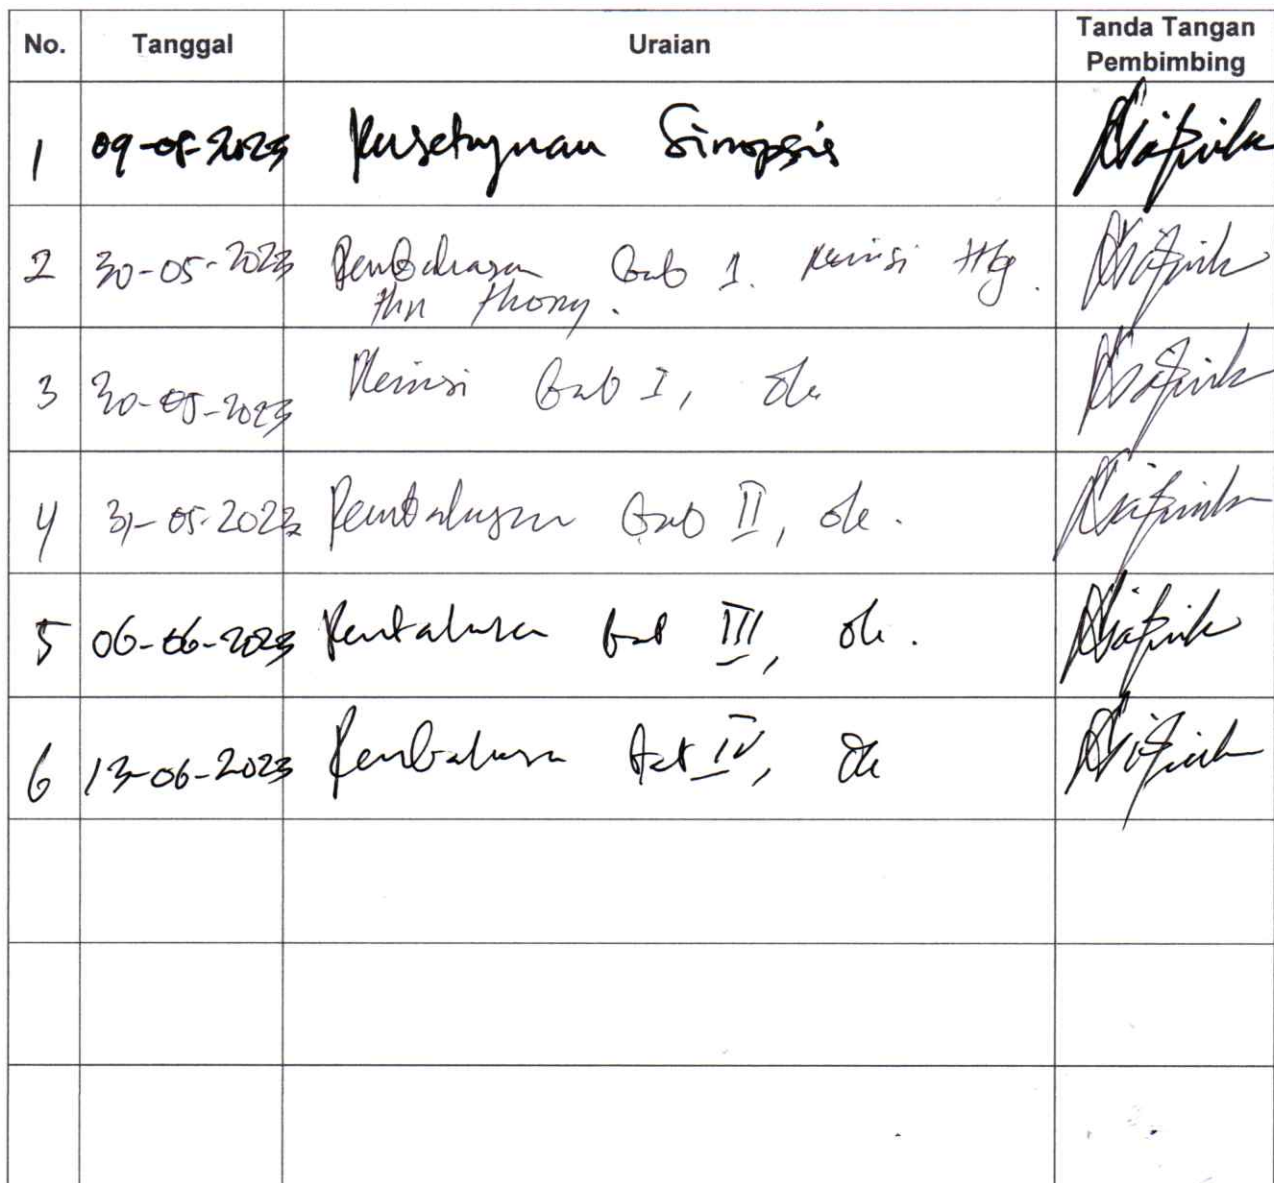 No. Tanggal Uraian Tanda Tangan
Pembimbing
1 09-05-2023 Persetujuan Sinopsis
2 30-05-2023 Pembahasan Bab 1. Revisi ttg.
3 30-05-2023 Revisi Bab I, ok
4 31-05-2023 Pembahasan Bab II, ok.
5 06-06-2023 Pembahasan Bab III, ok.
6 13-06-2023 Pembahasan Bab IV, ok